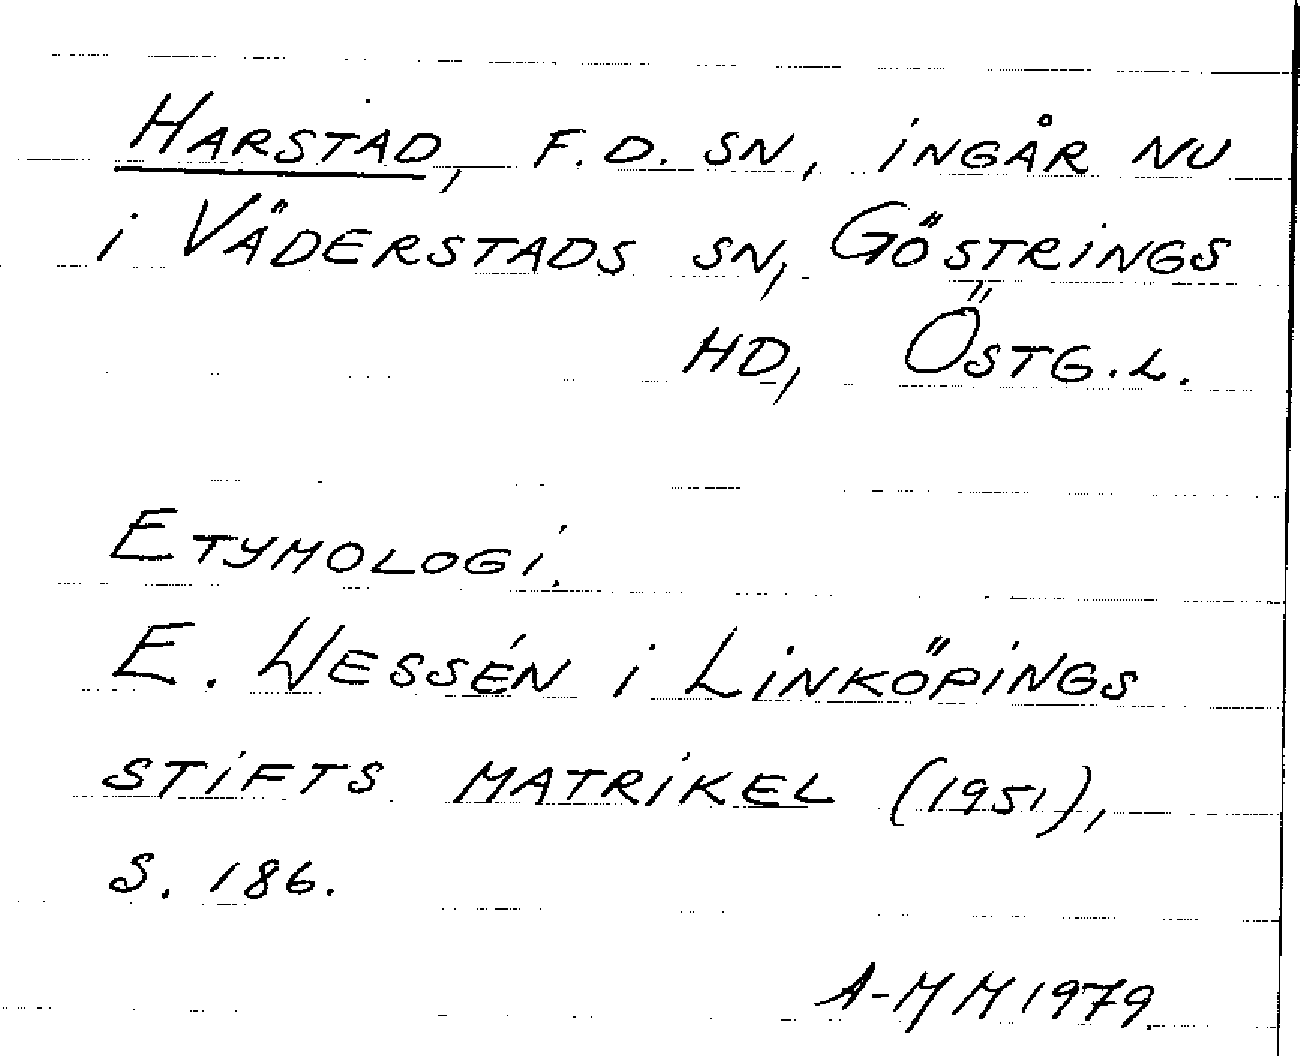 HARSTAD, F.D. SN, INGÅR NU
I VÄDERSTADS SN, GÖSTRINGS
HD, ÖSTG.L.
ETYMOLOGI.
E. WESSÉN I LINKÖPINGS
STIFTS MATRIKEL (1951),
S. 186.
A-MM 1979